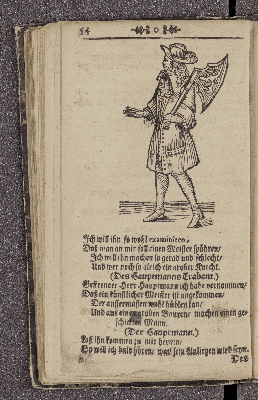 54
Ich will ihn so wohl examiniren/
Daß man an mir soll einen Meister spühren/
Ich will ihn machen so gerad und schlecht/
Und wer noch so gleich ein grober Knecht.
(Des Hauptmanns Trabant.)
Gestrenger Herr Hauptmann ich habe vernommen/
Daß ein künstlicher Meister ist angekommen/
Der ausermassen wohl hübeln kan/
Und aus einem groben Bauren machen einen ge-
schickten Mann.
(Der Hauptmann.)
Laß ihn kommen zu mir herein/
So will ich bald hören was sein Anligen wird seyn.
Des